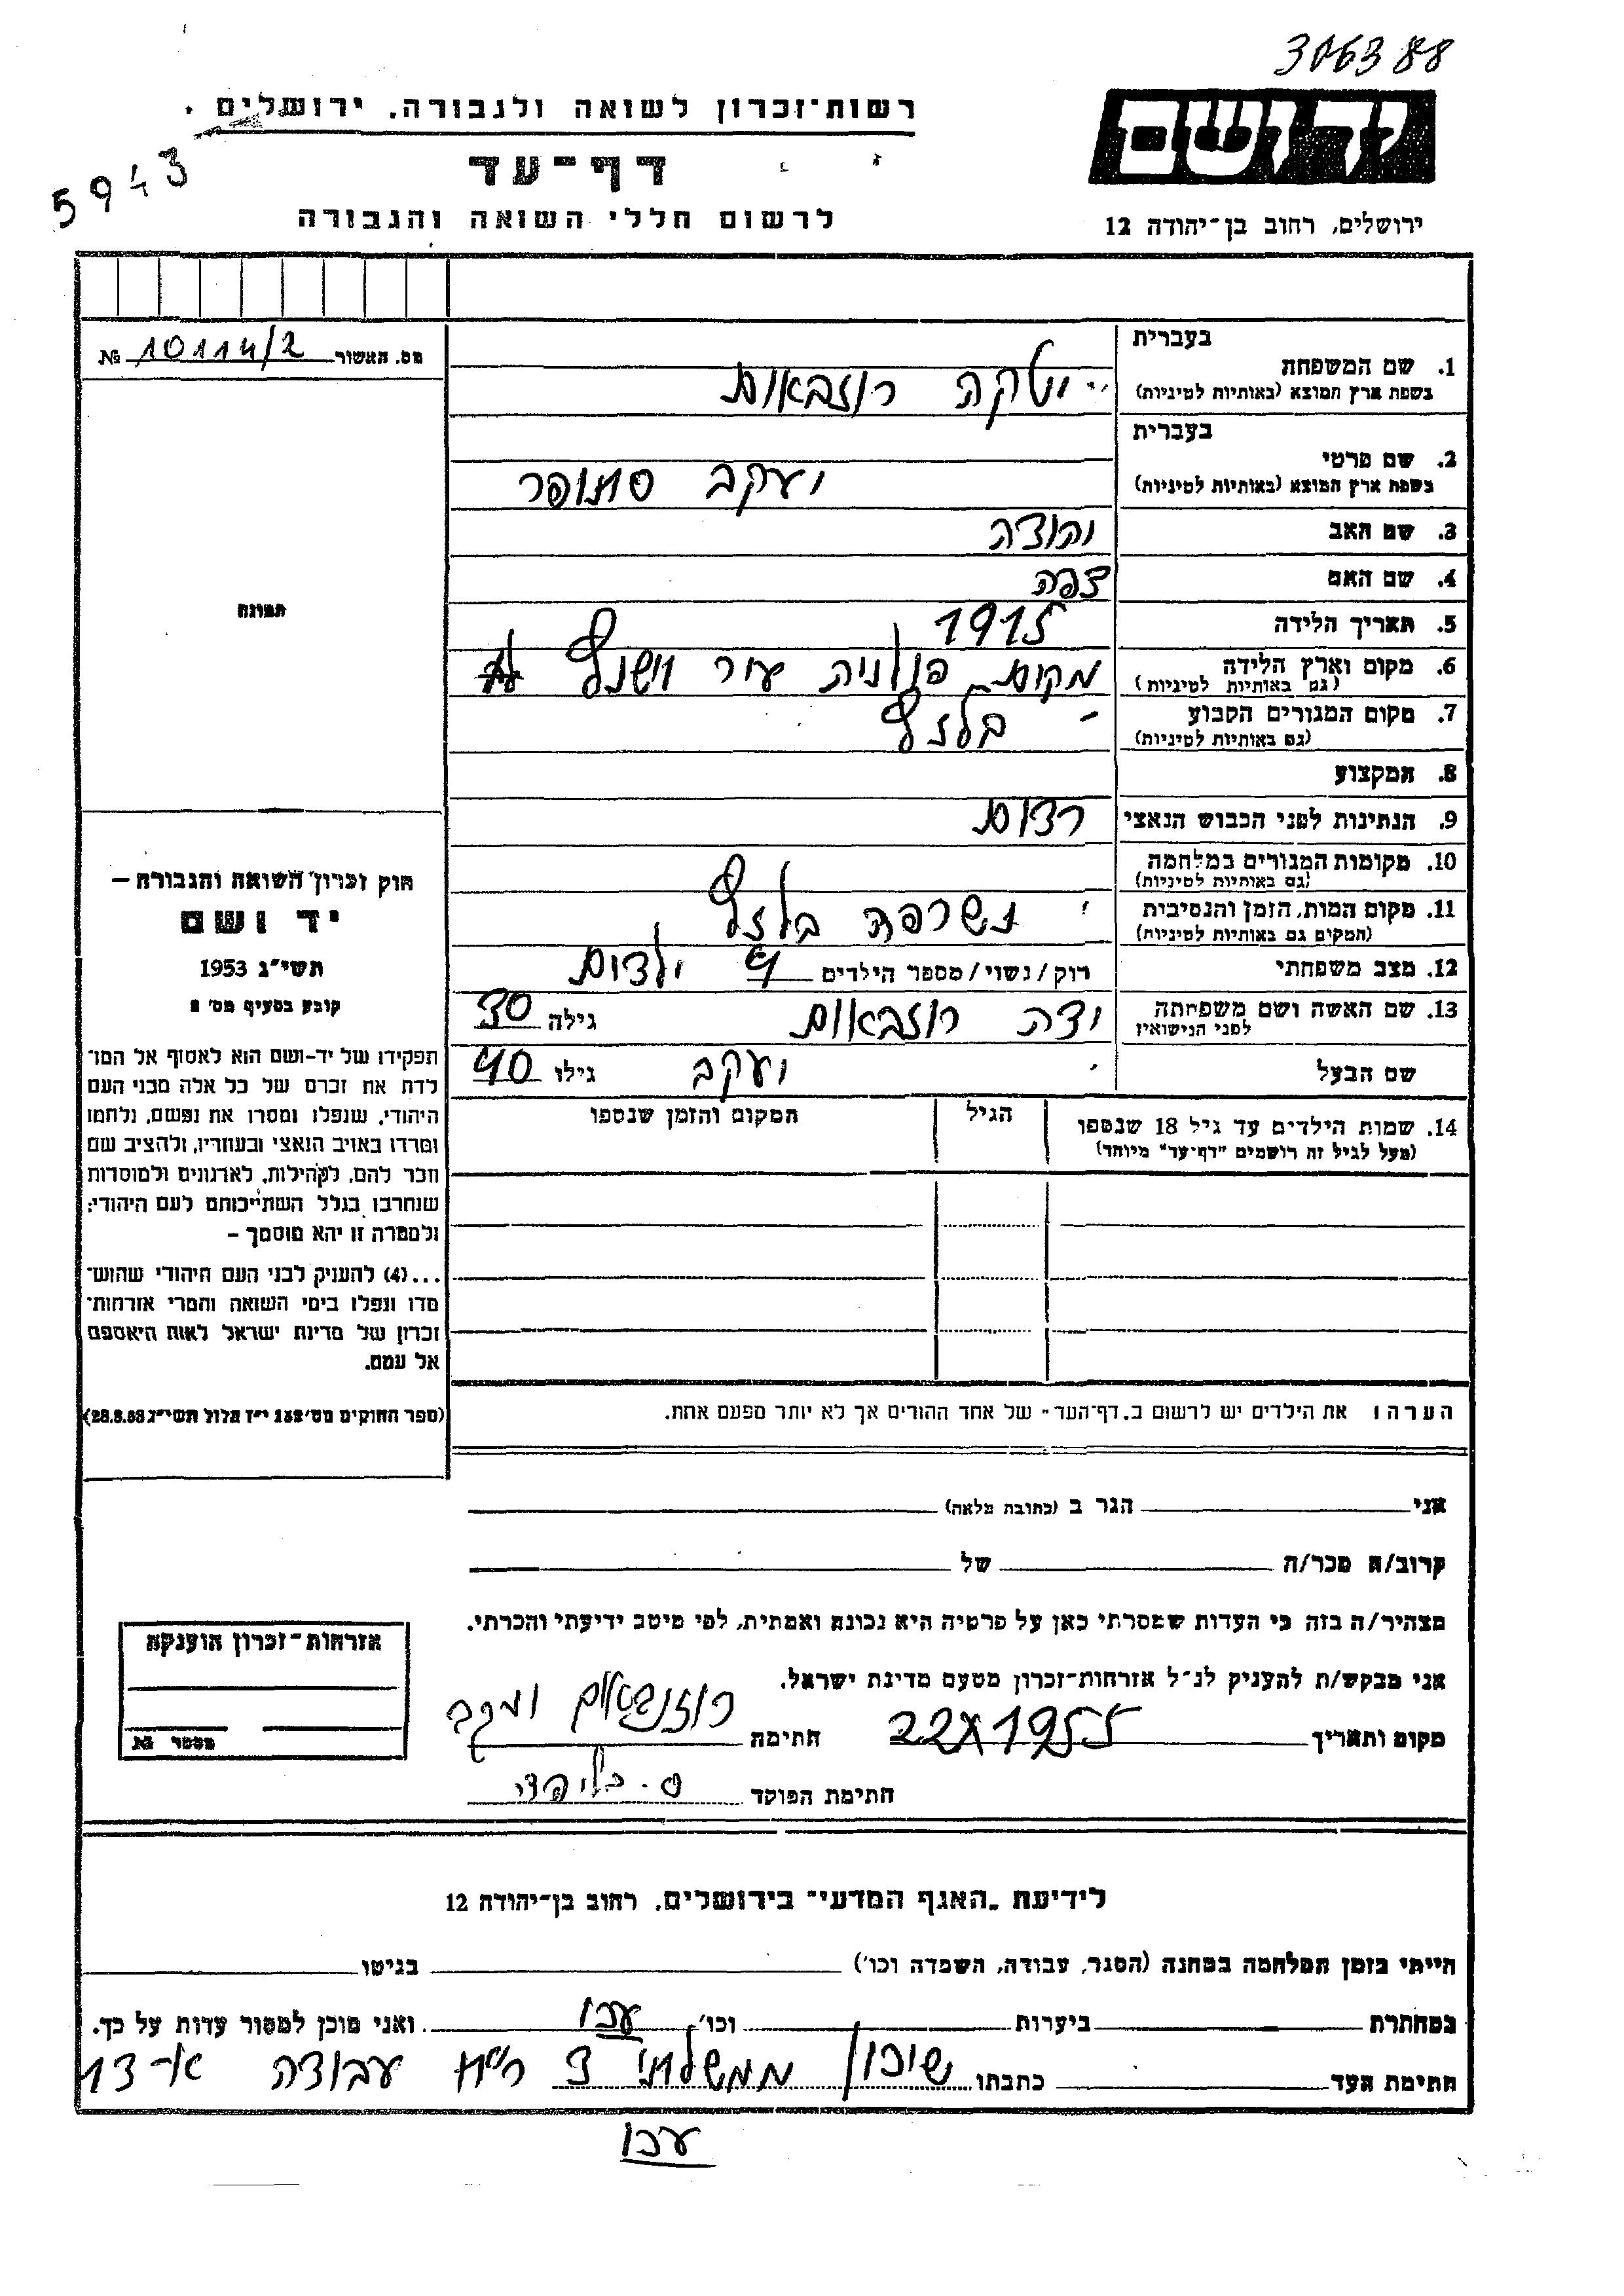 306388
רשות־זכרון לשואה ולגבורה, ירושלים
דף־עד
לרשום חללי השואה והגבורה
5943
יד ושם
ירושלים, רחוב בן־יהודה 12
מס. האשור № 10114/2
תמונה
בעברית
1. שם המשפחה
בשפת ארץ המוצא (באותיות לטיניות)
רוזבאום
בעברית
2. שם פרטי
בשפת ארץ המוצא (באותיות לטיניות)
יעקב
3. שם האב יהודה
4. שם האם
5. תאריך הלידה 1915
6. מקום וארץ הלידה מקום פולנית עיר
(גם באותיות לטיניות)
7. מקום המגורים הקבוע
(גם באותיות לטיניות)
8. המקצוע
9. הנתינות לפני הכבוש הנאצי
10. מקומות המגורים במלחמה
(גם באותיות לטיניות)
11. מקום המות, הזמן והנסיבות נשרפה
(המקום גם באותיות לטיניות)
12. מצב משפחתי רוק/נשוי/מספר הילדים 4 ילדים
13. שם האשה ושם משפחתה רוזבאום גילה 30
לפני הנישואין
שם הבעל יעקב גילו 40
14. שמות הילדים עד גיל 18 שנספו הגיל המקום והזמן שנספו
(מעל לגיל זה רושמים "דף־עד" מיוחד)
הערה: את הילדים יש לרשום ב"דף־העד" של אחד ההורים אך לא יותר מפעם אחת.
חוק זכרון השואה והגבורה —
יד ושם
תשי"ג 1953
קובע בסעיף מס' 2
תפקידו של יד־ושם הוא לאסוף אל המו־
לדת את זכרם של כל אלה מבני העם
היהודי, שנפלו ומסרו את נפשם, נלחמו
ומרדו באויב הנאצי ובעוזריו, ולהציב שם
וזכר להם, לקהילות, לארגונים ולמוסדות
שנחרבו בגלל השתייכותם לעם היהודי;
ולמטרה זו יהא מוסמך —
...(4) להעניק לבני העם היהודי שהוש־
מדו ונפלו בימי השואה והמרי אזרחות־
זכרון של מדינת ישראל לאות היאספם
אל עמם.
(ספר החוקים מס' 132 י"ז אלול תשי"ג 28.8.53)
אני הגר ב (כתובת מלאה)
קרוב/ה מכר/ה של
מצהיר/ה בזה כי העדות שמסרתי כאן על פרטיה היא נכונה ואמתית, לפי מיטב ידיעתי והכרתי.
אני מבקש/ת להעניק לנ"ל אזרחות־זכרון מטעם מדינת ישראל.
מקום ותאריך 22 X 1955 חתימה
חתימת הפוקד
אזרחות־זכרון הוענקה
מספר №
לידיעת "האגף המדעי" בירושלים, רחוב בן־יהודה 12
הייתי בזמן המלחמה במחנה (הסגר, עבודה, השמדה וכו') בגיטו
במחתרת ביערות וכו' עכו ואני מוכן למסור עדות על כך.
חתימת העד כתבתו שיכון ממשלתי עבודה
עכו